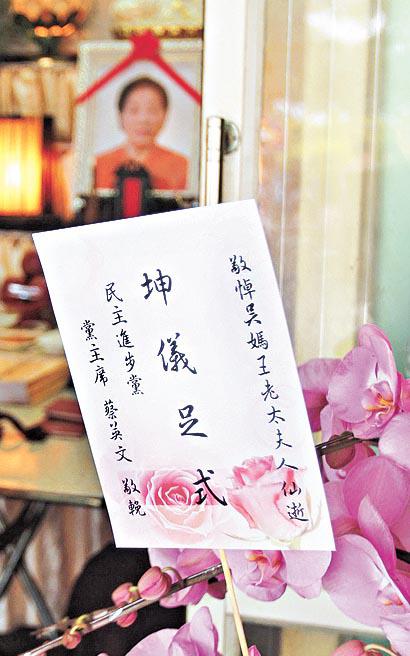 敬悼吳媽王老太夫人仙逝
坤儀足式
民主進步黨
黨主席 蔡英文 敬輓